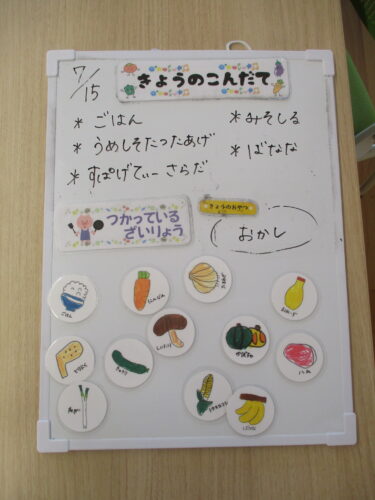 7/15
きょうのこんだて
* ごはん
* みそしる
* うめしそたつたあげ
* ばなな
* すぱげてぃーさらだ
つかっている
ざいりょう
きょうのおやつ
おかし
ごはん
にんじん
たまねぎ
しいたけ
かぼちゃ
きゅうり
ハム
ばなな